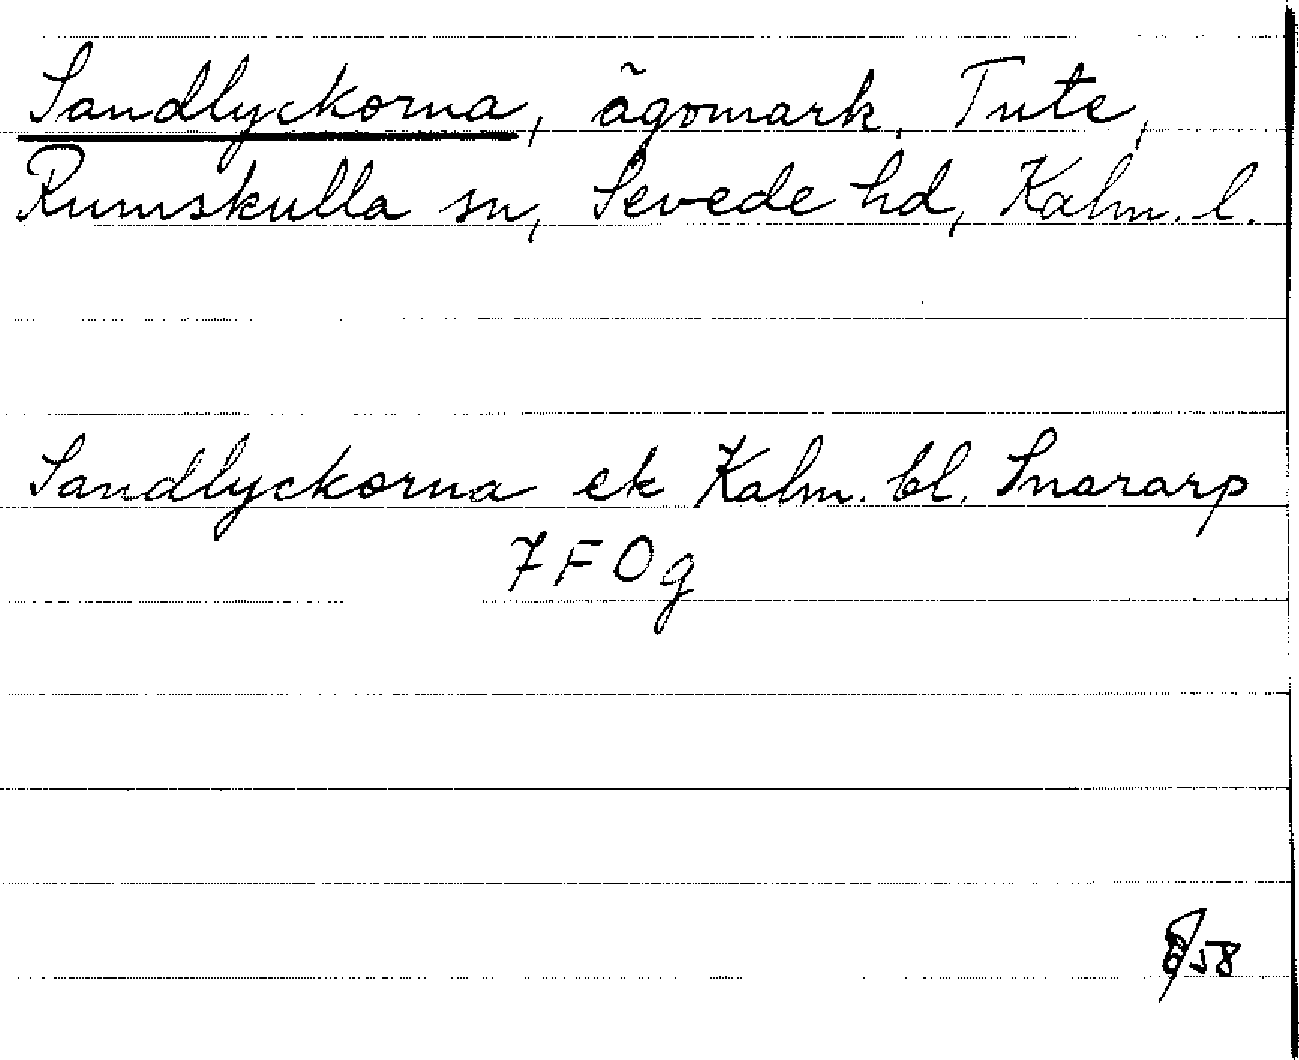 Sandlyckorna, ägomark. Tute,
Rumskulla sn, Sevede hd, Kalm. l.
Sandlyckorna ek Kalm. bl. Snararp
7 F 0 g
58